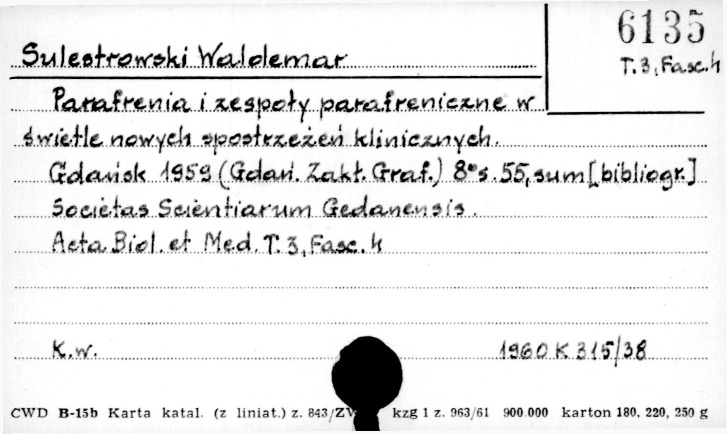 6135
Sulestrowski Waldemar
T. 3, Fasc. 4
Parafrenia i zespoły parafreniczne w
świetle nowych spostrzeżeń klinicznych.
Gdańsk 1959 (Gdań. Zakł. Graf.) 8° s. 55, sum [bibliogr.]
Societas Scientiarum Gedanensis.
Acta Biol. et Med. T. 3, Fasc. 4
K.w. 1960 K 315/38
CWD B-15b Karta katal. (z liniat.) z. 843/ZW kzg 1 z. 963/61 900 000 karton 180, 220, 250 g